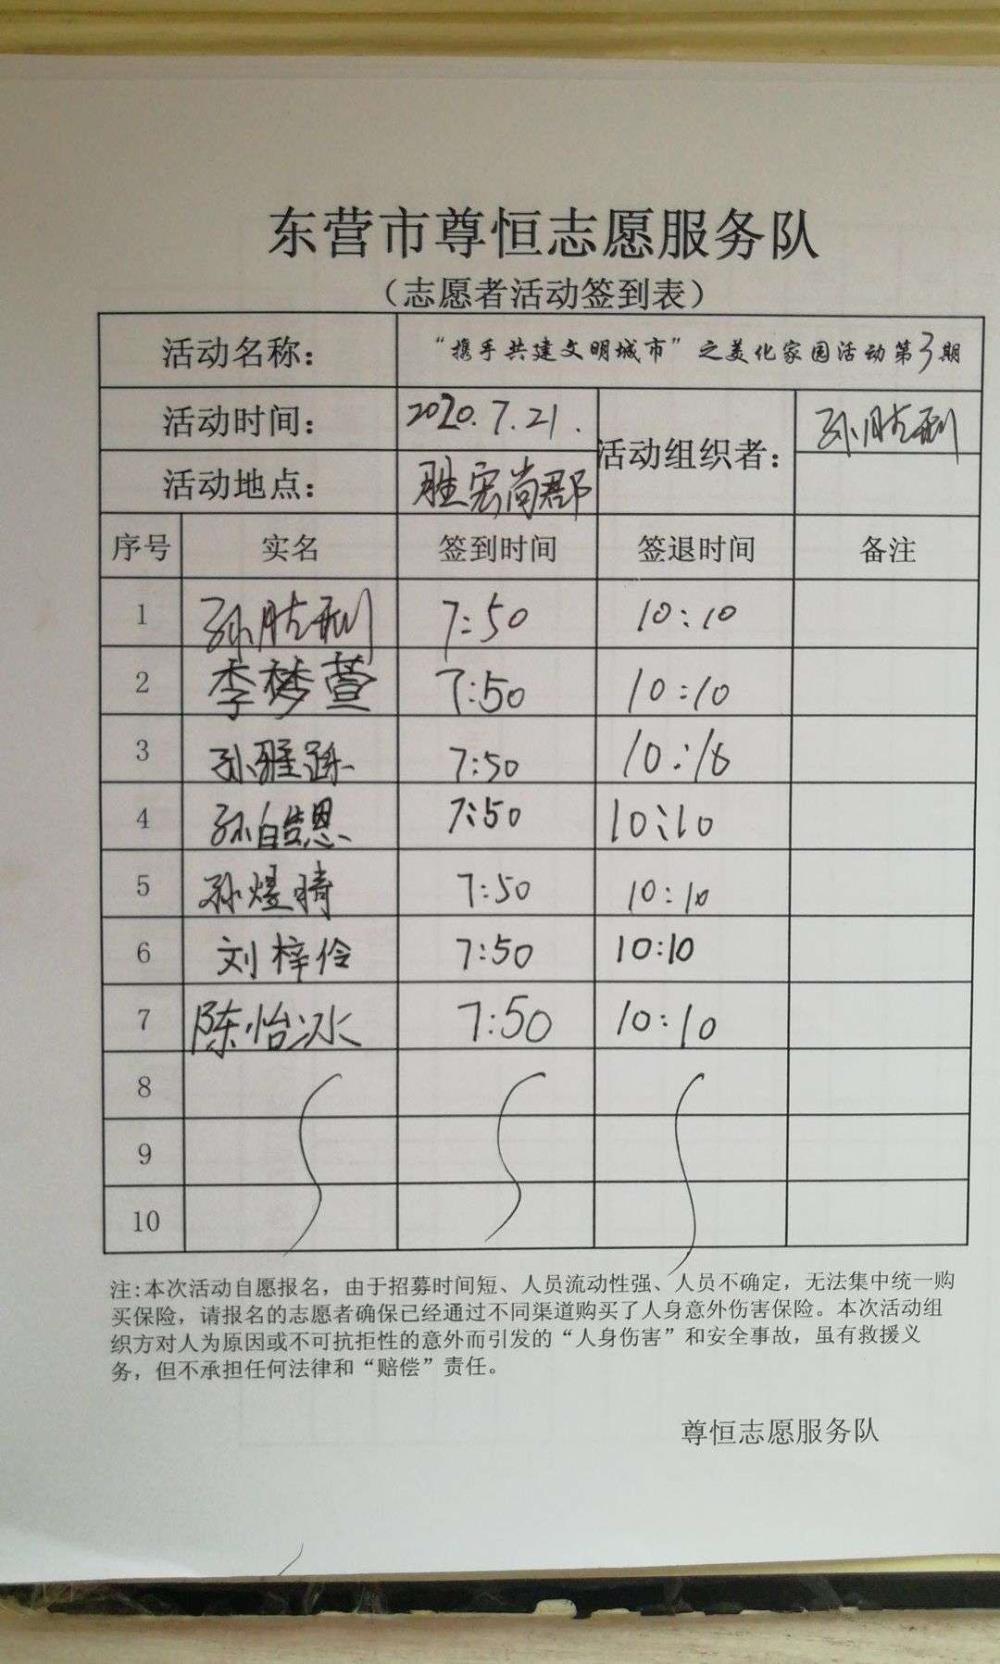 东营市尊恒志愿服务队
（志愿者活动签到表）
活动名称： “携手共建文明城市”之美化家园活动第3期
活动时间： 2020.7.21. 活动组织者： 孙胜利
活动地点： 胜宏尚郡
序号 实名 签到时间 签退时间 备注
1 孙胜利 7:50 10:10
2 李梦萱 7:50 10:10
3 孙雅 7:50 10:18
4 孙皓恩 7:50 10:10
5 孙煜晴 7:50 10:10
6 刘梓伶 7:50 10:10
7 陈怡冰 7:50 10:10
8
9
10
注:本次活动自愿报名，由于招募时间短、人员流动性强、人员不确定，无法集中统一购
买保险，请报名的志愿者确保已经通过不同渠道购买了人身意外伤害保险。本次活动组
织方对人为原因或不可抗拒性的意外而引发的“人身伤害”和安全事故，虽有救援义
务，但不承担任何法律和“赔偿”责任。
尊恒志愿服务队